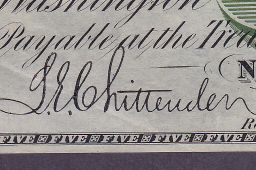 Washington
Payable at the Trea
N
L.E. Chittenden
Re
FIVE FIVE FIVE FIVE FIVE FIVE